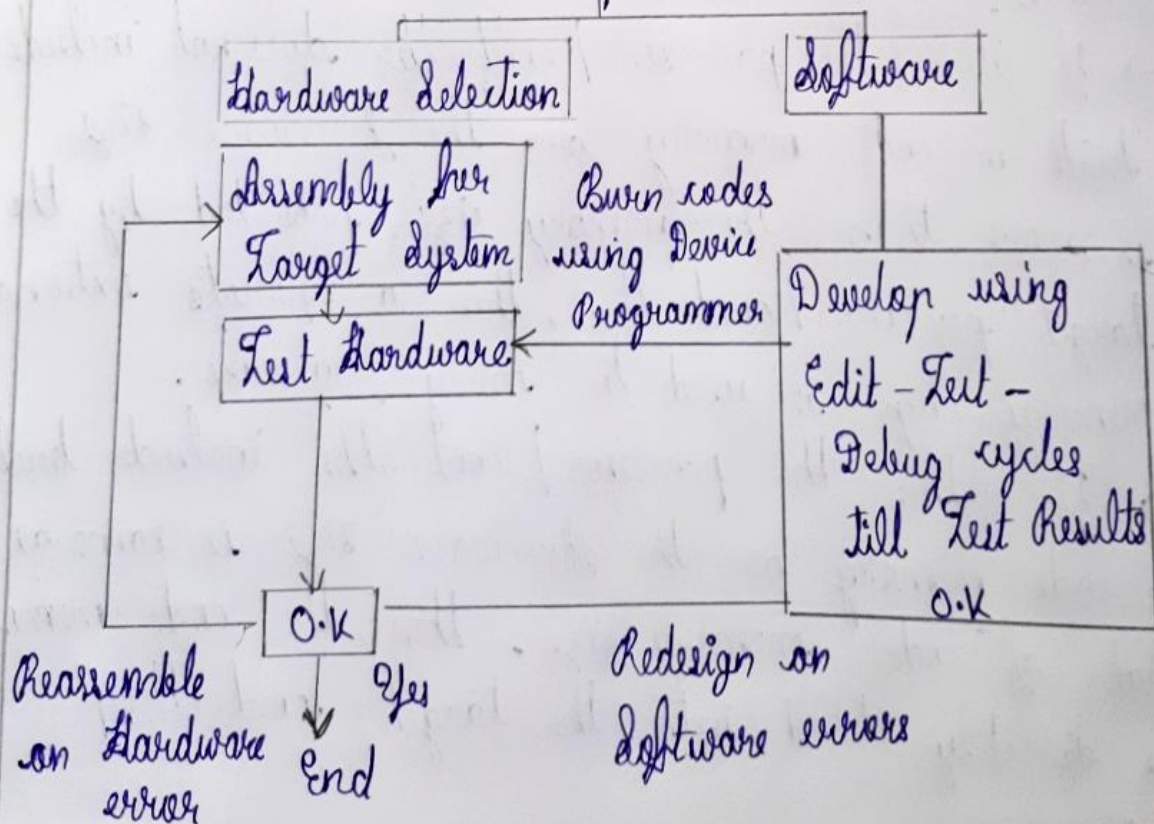 Hardware Selection
Software
Assembly for
Target System
Burn codes
using Device
Programmer
Test Hardware
Develop using
Edit - Test -
Debug cycles
till Test Results
O.K
O.K
Reassemble
on Hardware
error
Yes
End
Redesign on
Software errors